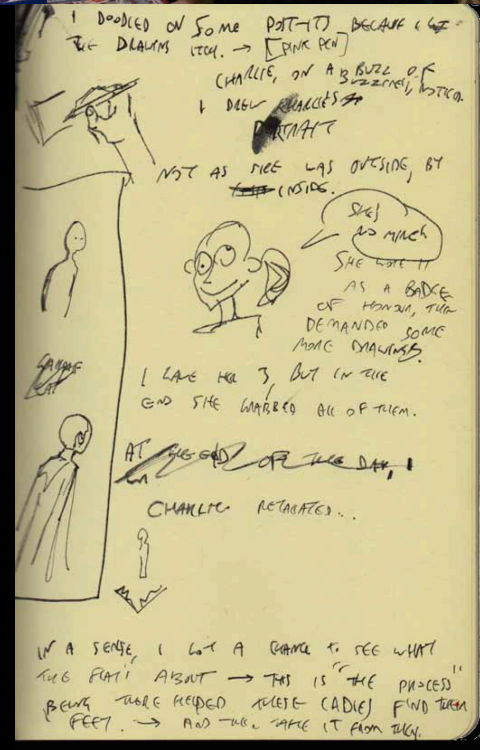 I DOODLED ON SOME POST-ITS BECAUSE I GOT
THE DRAWING ITCH. → [PINK PEN]
CHARLIE, ON A BUZZ OF
BUZZINESS, NOTICED.
I DREW CHARLIES
PORTRAIT
NOT AS SHE WAS OUTSIDE, BY
INSIDE.
SHE'S
NO MINCH
SHE WORE IT
AS A BADGE
OF HONOUR, THEN
DEMANDED SOME
MORE DRAWINGS.
I GAVE HER 3, BUT IN THE
END SHE GRABBED ALL OF THEM.
AT THE END OF THE DAY, I
CHARLIE RETALIATED..
IN A SENSE, I GOT A CHANCE TO SEE WHAT
THE FLAT'S ABOUT → THIS IS "THE PROCESS"
BEING THERE HELPED THESE LADIES FIND THEIR
FEET. → AND THEN TAKE IT FROM THEM.